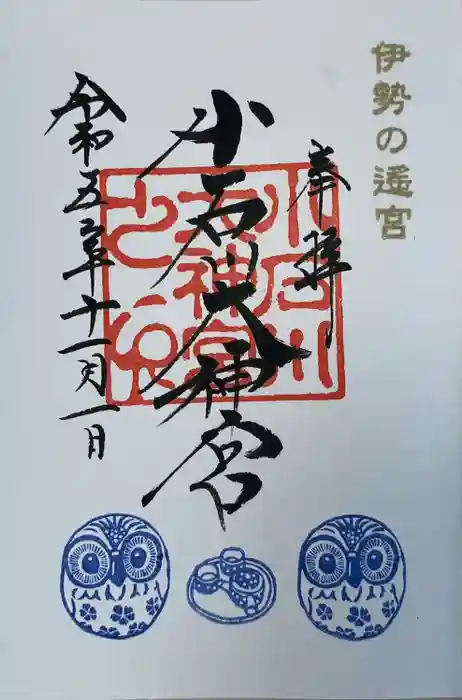 伊勢の遥宮
奉拝
小石川大神宮
令和五年十一月一日
小石川
大神宮